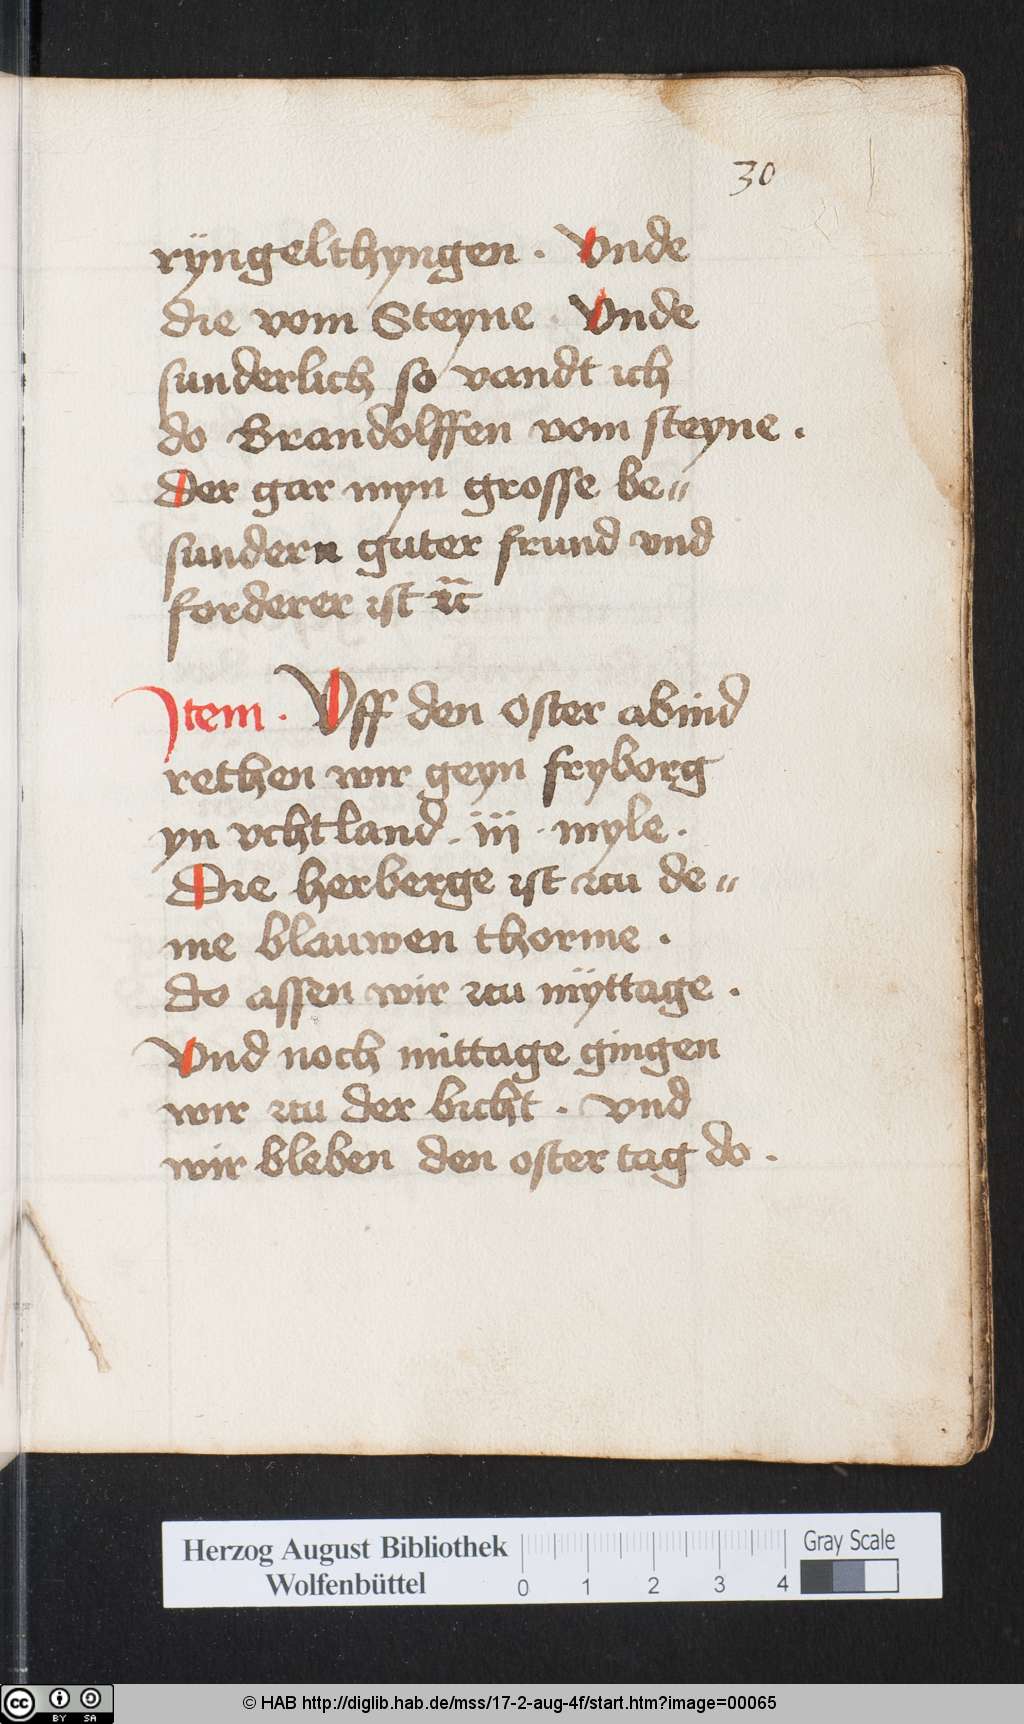 30
rÿngelthyngen . Vnde
die vom Steyne . Vnde
sunderlich so vandt ich
do Brandolffen vom steyne .
Der gar myn grosse be⸗
sundern guter frund vnd
forderer ist ꝛc
Item . Vff den Oster abind
rethen wir geyn fryborg
yn vchtland . iij . myle .
Die herberge ist zcu de⸗
me blauwen thorme .
do assen wir zcu mÿttage .
Vnd noch mittage gingen
wir zcu der bicht . vnd
wir bleben den oster tag do .
Herzog August Bibliothek
Wolfenbüttel
0 1 2 3 4
Gray Scale
cc BY SA
© HAB http://diglib.hab.de/mss/17-2-aug-4f/start.htm?image=00065